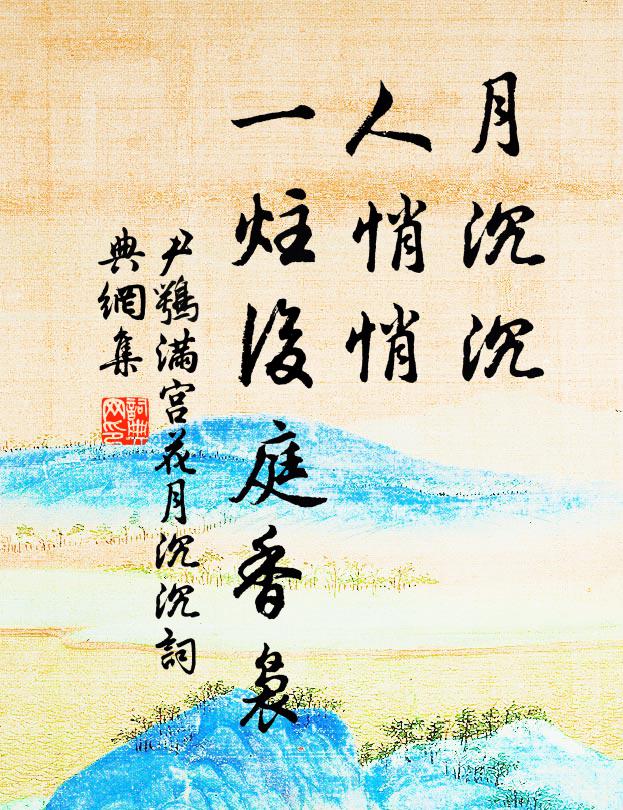 月沉沉
人悄悄
一炷後庭香裊
尹鶚滿宮花月沉沉詞
典網集
詞典
网印